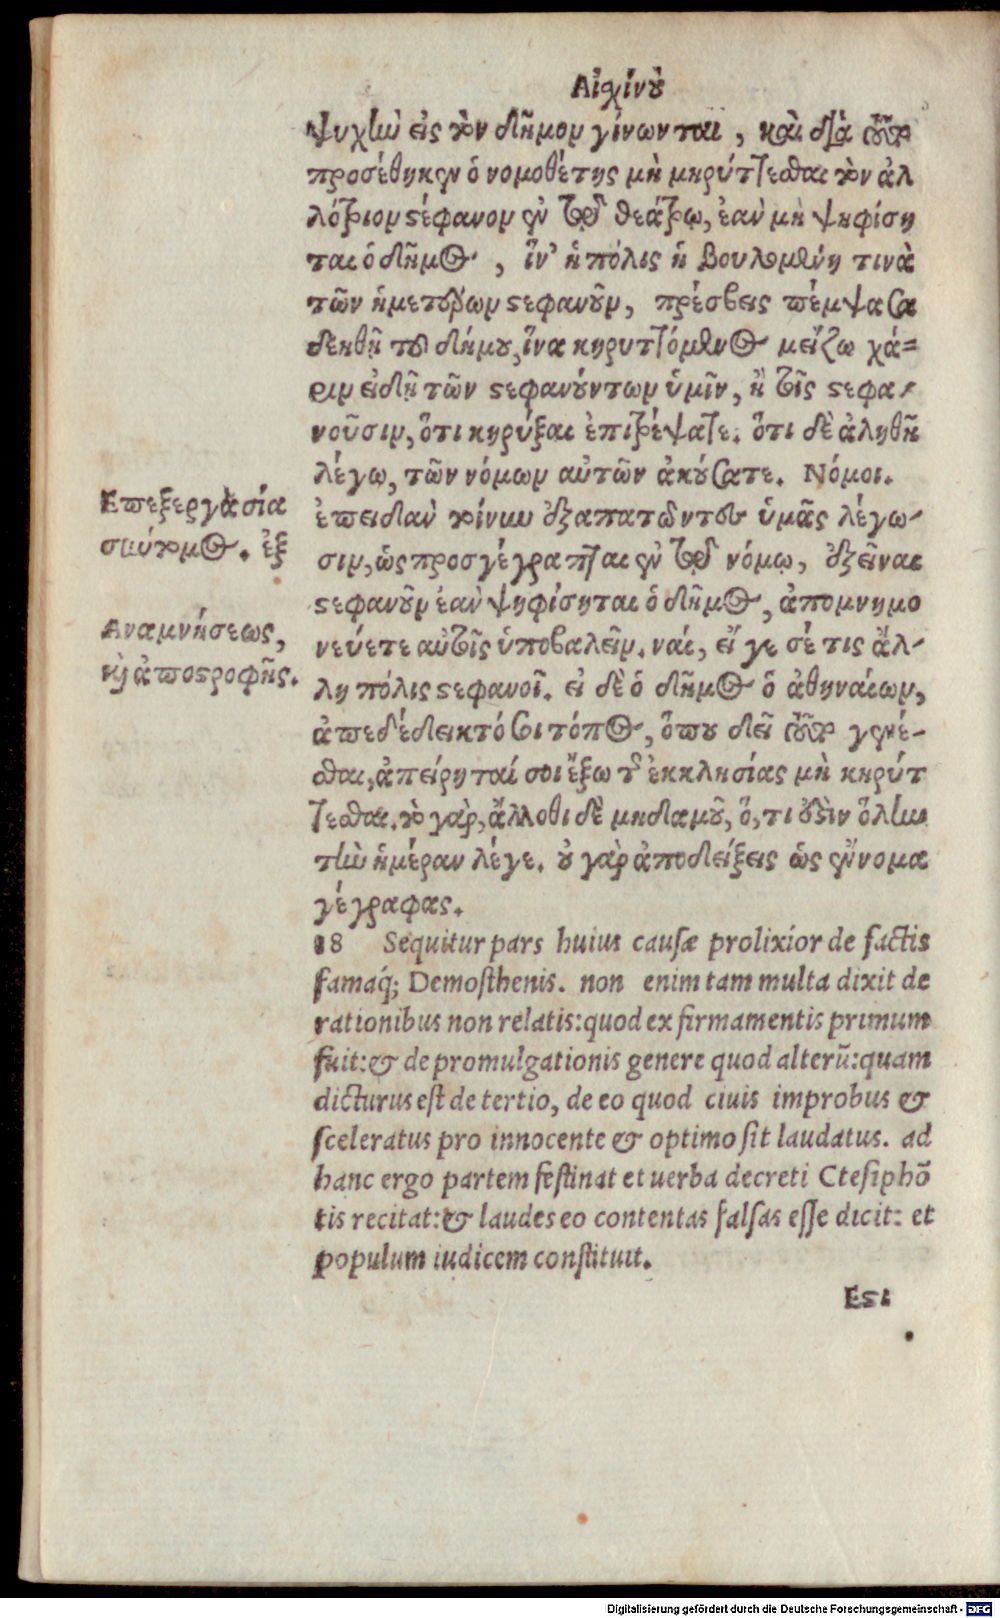 Αἰχίνου
ψυχὴν εἰς τὸν δῆμον γίνωνται, καὶ διὰ τοῦτο
προσέθηκεν ὁ νομοθέτης μὴ κηρύττεσθαι τὸν ἀλ
λότριον στέφανον ἐν τῷ θεάτρῳ, ἐὰν μὴ ψηφίση
ται ὁ δῆμος, ἵν' ἡ πόλις ἡ βουλομένη τινὰ
τῶν ἡμετέρων στεφανοῦν, πρέσβεις πέμψασα
δεηθῇ τοῦ δήμου, ἵνα κηρυττόμενος μείζω χά=
ριν εἰδῇ τῶν στεφανούντων ὑμῖν, ἢ τοῖς στεφα-
νοῦσιν, ὅτι κηρύξαι ἐπιτρέψατε. ὅτι δὲ ἀληθῆ
λέγω, τῶν νόμων αὐτῶν ἀκούσατε. Νόμοι.
Επεξεργασία
σπεύσμος. ἐξ
Αναμνήσεως,
καὶ ἀποστροφῆς.
ἐπειδὰν τοίνυν ἐξαπατῶντες ὑμᾶς λέγω-
σιν, ὡς προσγέγραπται ἐν τῷ νόμῳ, ἐξεῖναι
στεφανοῦν ἐὰν ψηφίσηται ὁ δῆμος, ἀπομνημο
νεύετε αὐτοῖς ὑποβαλεῖν. ναί, εἴ γε σέ τις ἄλ-
λη πόλις στεφανοῖ. εἰ δὲ ὁ δῆμος ὁ ἀθηναίων,
ἀπεδέδεικτό σοι τόπος, ὅπου δεῖ τοῦτο γενέ-
σθαι, ἀπείρηταί σοι ἔξω τῆς ἐκκλησίας μὴ κηρύτ
τεσθαι. τὸ γὰρ, ἄλλοθι δὲ μηδαμοῦ, ὅ, τι οὖν ὅλην
τὴν ἡμέραν λέγε. οὐ γὰρ ἀποδείξεις ὡς ἔννομα
γέγραφας.
18 Sequitur pars huius causæ prolixior de factis
famaq́; Demosthenis. non enim tam multa dixit de
rationibus non relatis: quod ex firmamentis primum
fuit: & de promulgationis genere quod alterũ: quam
dicturus est de tertio, de eo quod ciuis improbus &
sceleratus pro innocente & optimo sit laudatus. ad
hanc ergo partem festinat et uerba decreti Ctesiphõ
tis recitat: & laudes eo contentas falsas esse dicit: et
populum iudicem constituit.
Εστι
Digitalisierung gefördert durch die Deutsche Forschungsgemeinschaft - DFG